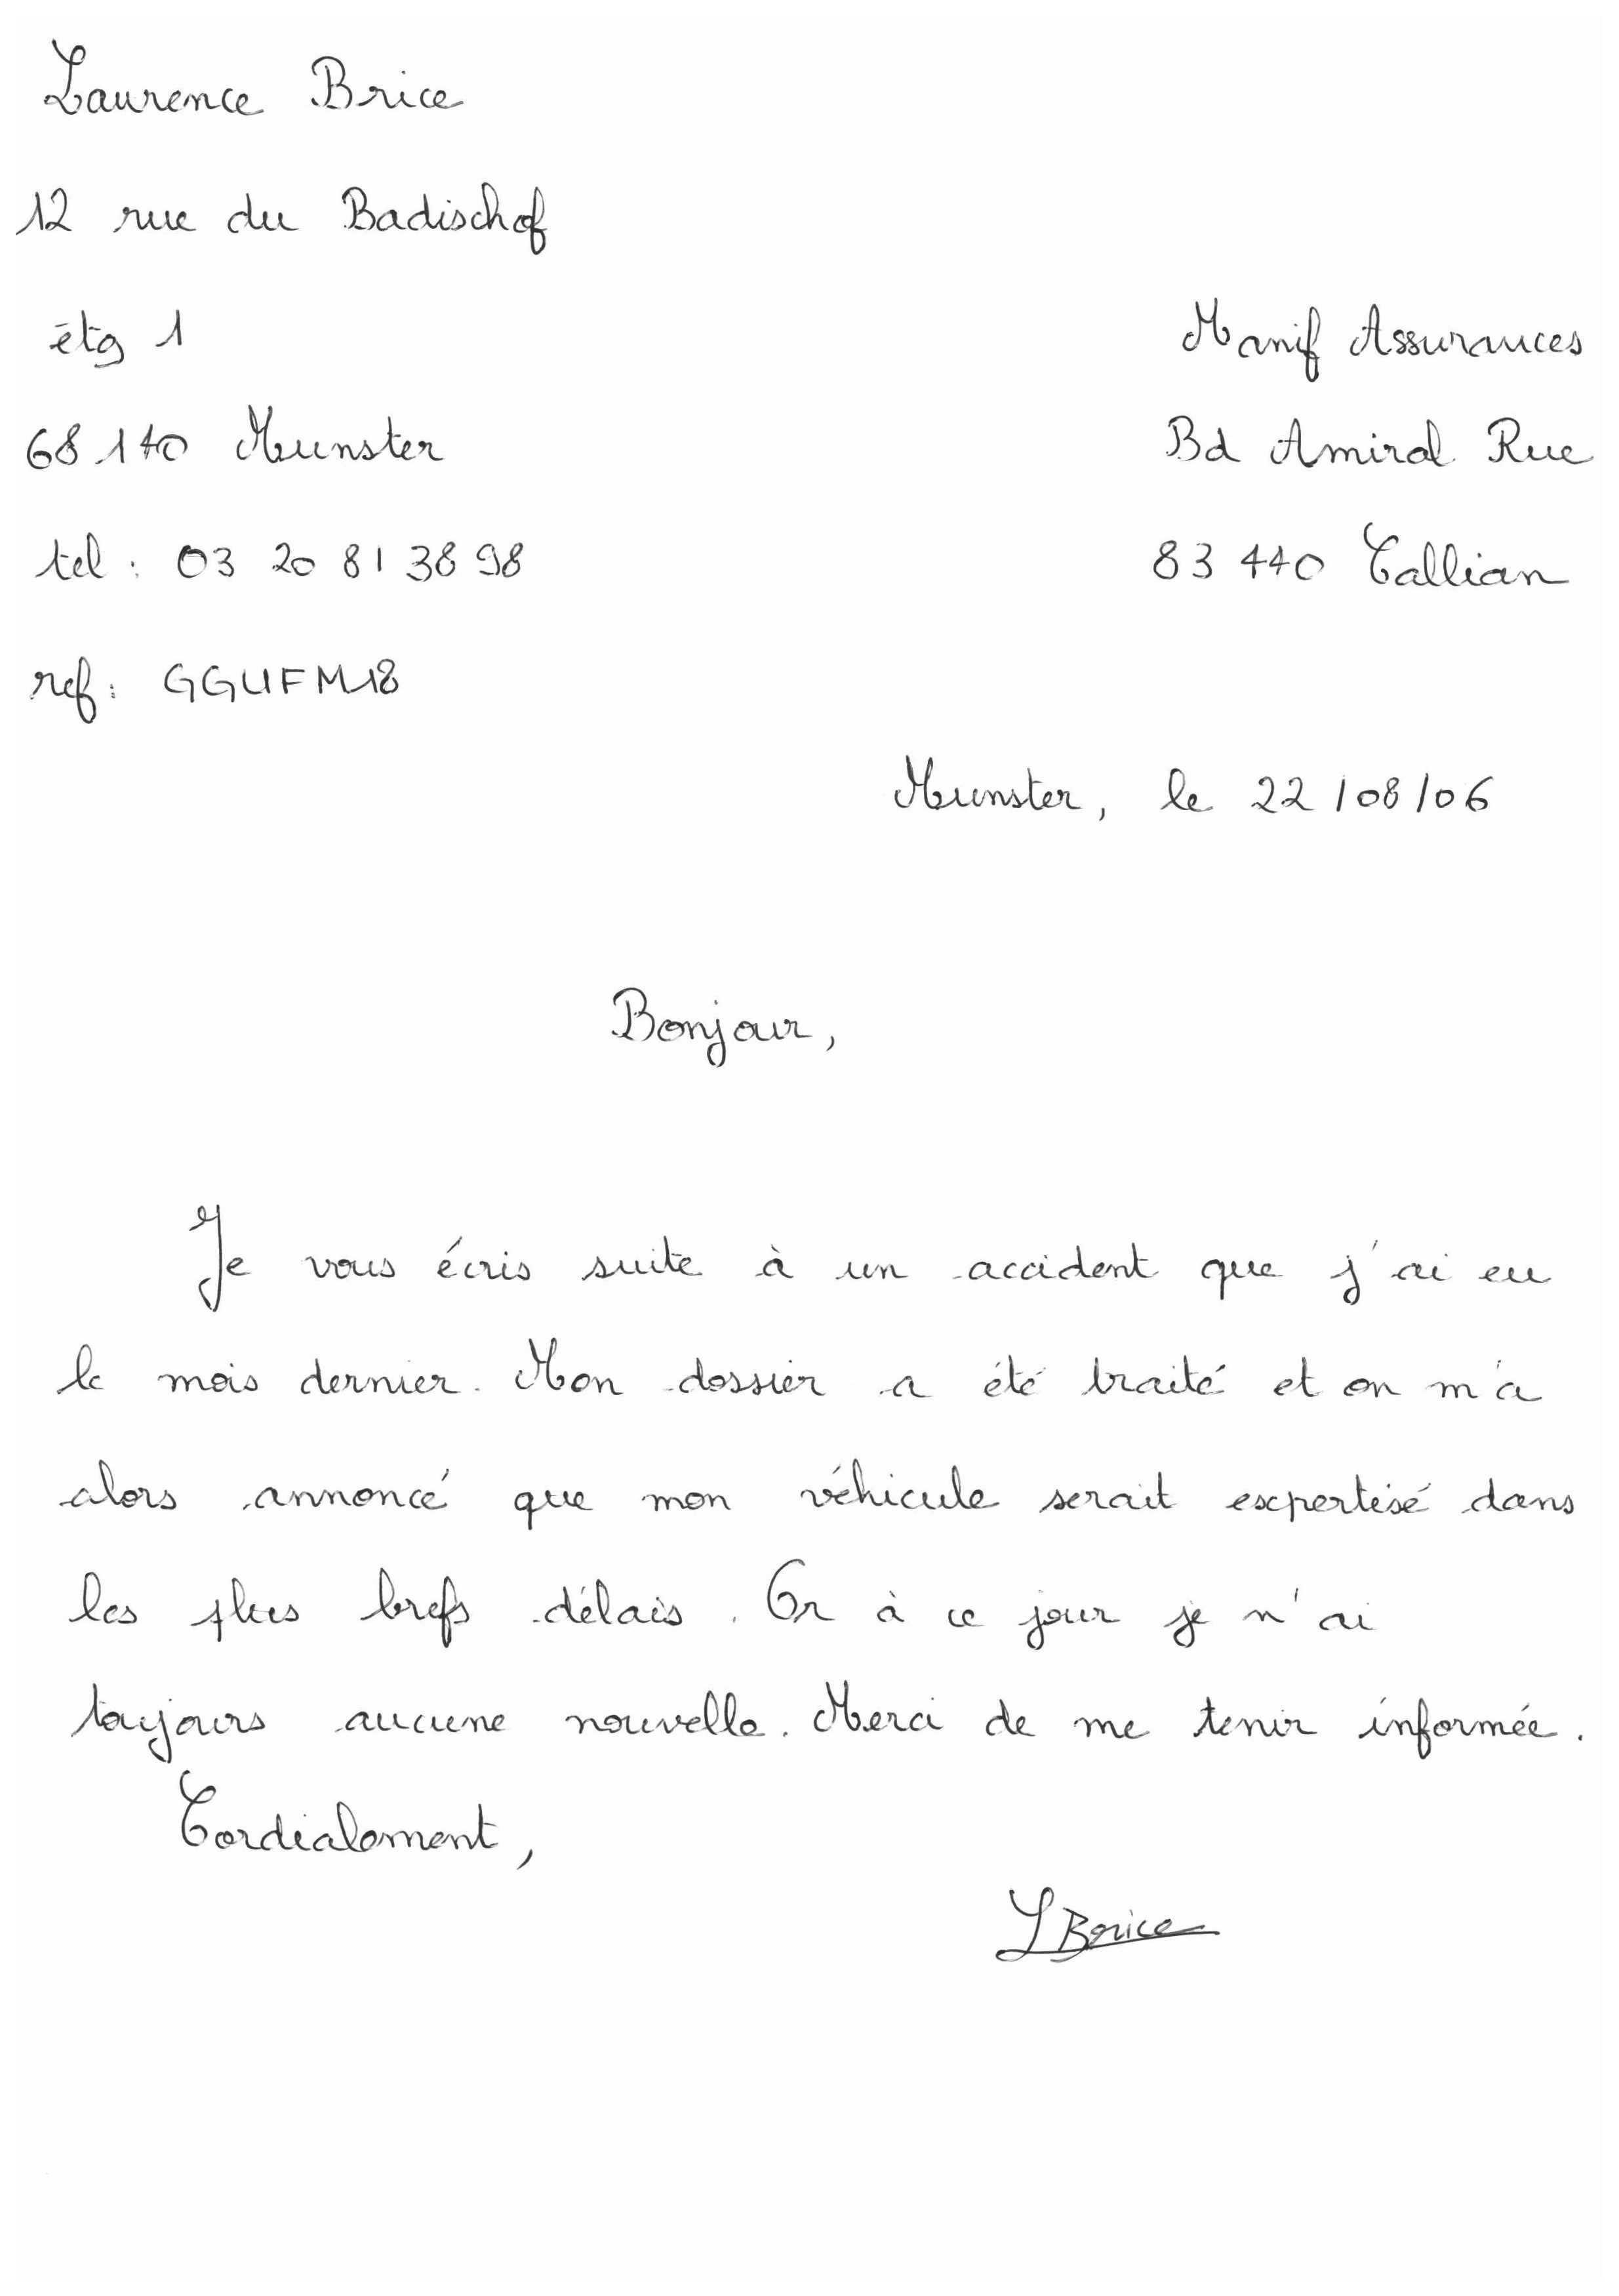 Laurence Brice
12 rue du Badischof
étg 1
68140 Munster
tel : 03 20 81 38 98
ref : GGUFM18
Manif Assurances
Bd Amiral Rue
83 440 Callian
Munster, le 22/08/06
Bonjour,
Je vous écris suite à un accident que j'ai eu
le mois dernier. Mon dossier a été traité et on m'a
alors annoncé que mon véhicule serait expertisé dans
les plus brefs délais. Or à ce jour je n'ai
toujours aucune nouvelle. Merci de me tenir informée.
Cordialement,
LBrice